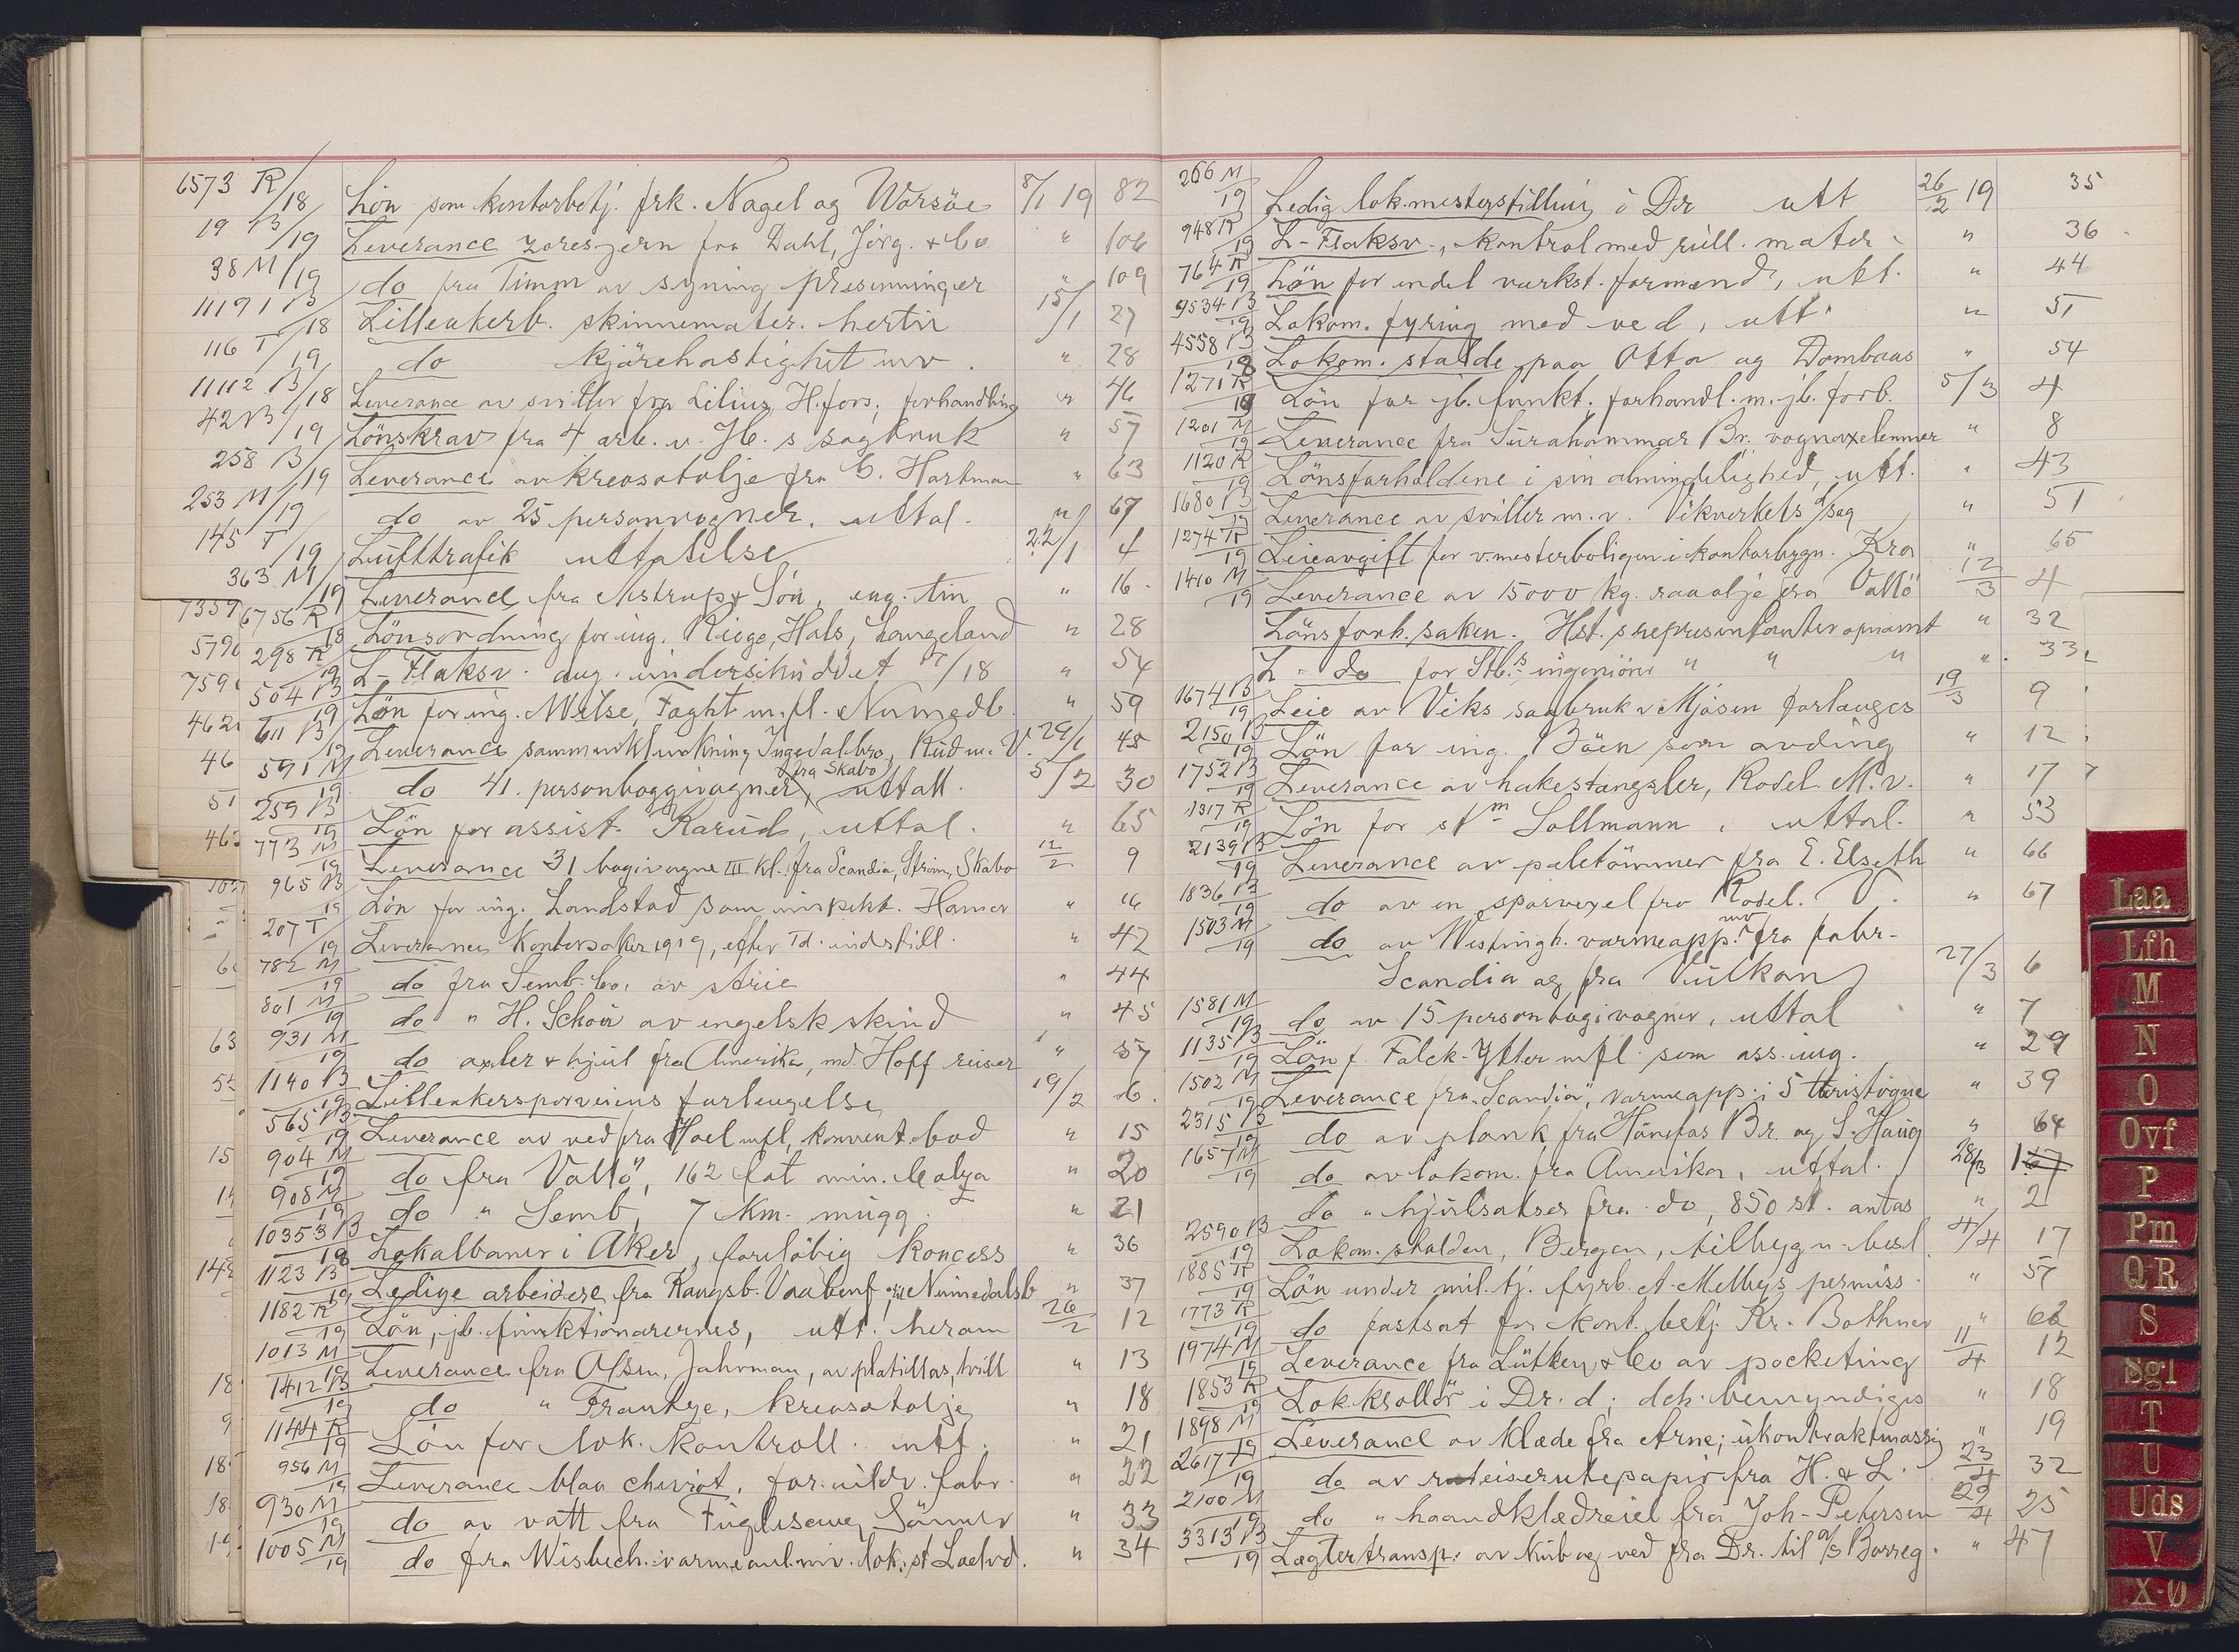 6573 R/18 Lön som kontorbetj. frk. Nagel og Worsöe 8/1 19 82
19 B/19 Leverance zoresjern fra Dahl, Jörg. & Co " 106
38 M/19 do fra Timm av syning presenninger " 109
11191 B/18 Lilleakerb. skinnemater. hertil 15/1 27
116 T/19 do kjörehastighet mv. " 28
11112 B/18 Leverance av sviller fra Lilius, H.fors; forhandling " 46
42 B/19 Lönskrav fra 4 arb. v. Jb. s sagbruk " 57
258 B/19 Leverance av kreosotolje fra C. Hartman " 63
253 M/19 do av 25 personvogner. uttal. " 67
145 T/19 Lufttrafik uttalelse 22/1 4
363 M/19 Leverance fra Astrup & Sön, eng. tin " 16
6756 R/18 Lönsordning for ing. Riege, Hals, Langeland " 28
298 R/19 L-Flaksv. ang. underskuddet /18 " 54
504 B/19 Lön for ing. Melse, Faght m.fl. Numedb. " 59
611 B/19 Leverance sammenklinkning Ingedalbro, Rud m. V. 29/1 45
591 M/19 do 41. personboggivogner, fra Skabo uttall. 5/2 30
259 B/19 Lön for assist. Karud, uttal. " 65
773 M/19 Leverance 31 bogivogne III kl. fra Scandia, Ström, Skabo 12/2 9
965 B/19 Lön for ing. Landstad som inspekt. Hamar " 16
207 T/19 Leverance Kontorsaker 1919, efter Td. indstill. " 42
782 M/19 do fra Semb. Co. av strie " 44
801 M/19 do " H. Schou av engelsk skind " 45
931 M/19 do axler & hjul fra Amerika, md. Hoff reiser " 57
1140 B/19 Lilleakersporveiens forlengelse 19/2 6
565 B/19 Leverance av ved fra Hoel mfl, konvent. bod " 15
904 M/19 do fra Vallö, 162 fat min. Colza " 20
908 M/19 do " Semb, 7 Km. mugg. " 21
10353 B/18 Lokalbaner i Aker, foreløbig koncess " 36
1123 B/19 Ledige arbeidere fra Kongsb. Vaabenf. til Numedalsb " 37
1182 R/19 Lön, jb. funktionærernes, utt. herom 26/2 12
1013 M/19 Leverance fra Olsen, Jahrman, av platillas, tvill " 13
1412 B/19 do " Frantze, kreosotolje " 18
1144 R/19 Lön for lok. kontroll. utt. " 21
956 M/19 Leverance blaa cheviot, for. uildv. fabr. " 22
930 M/19 do av vatt fra Fuglesang Sönner " 33
1005 M/19 do fra Wisbech. varmeanl. mv. lok.st Lodalvd. " 34
7359
5790
7590
4621
46
51
463
63
15
142
18
9
18
18
19
266 M/19 Ledig lok.mesterstilling i Dr utt 26/2 19 35
948 R/19 L-Flaksv., kontrol med rull. mater. " 36
764 R/19 Lön for endel verkst. formend, utt. " 44
9534 B/19 Lokom. fyring med ved, utt. " 51
4558 B/18 Lokom. stalde paa Otta og Dombaas " 54
1271 R/19 Lön for jb. funkt. forhandl. m. jb. forb. 5/3 4
1201 M/19 Leverance fra Surahammar Br. vognaxelemner " 8
1120 R/19 Lönsforholdene i sin almindelighed, utt. " 43
1680 B/19 Leverance av sviller m.v. Vikverkets d/sag " 51
1274 R/19 Leieavgift for v.mesterboligen i kontorbygn. Kra " 65
1410 M/19 Leverance av 15000 kg. raaolje fra Vallö 12/3 4
Lönsforh. saken. Hst. s representanter opnævnt " 32
L - do for Stb.s ingeniörer " " " " 33
1674 B/19 Leie av Viks sagbruk v Mjösen forlanges 19/3 9
2150 B/19 Lön for ing. Böen som avding " 12
1752 B/19 Leverance av hakestangsler, Rodel. M.v. " 17
1317 R/19 Lön for stm Sollmann, uttal. " 53
2139 B/19 Leverance av peletömmer fra E. Elseth " 66
1836 B/19 do av en sporvexel fra Rodel. V. " 67
1503 M/19 do av Westingh. varmeapp. mv fra fabr-
Scandia og fra Vulkan 27/3 6
1581 M/19 do av 15 personbogivogner, uttal " 7
1135 B/19 Lön f. Falck-Ytter mfl. som ass. ing. " 29
1502 M/19 Leverance fra "Scandia", varmeapp. i 5 turistvogne " 39
2315 B/19 do av plank fra Hönefos Br. og S. Haug " 64
1657 M/19 do av lokom. fra Amerika, uttal. 28/3 1
do " hjulsatser fra do, 850 st. antas " 2
2590 B/19 Lokom. stalden, Bergen, tilbygn. besl. 4/4 17
1885 R/19 Lön under mil. tj. fyrb. A. Melbys permiss. " 57
1773 R/19 do fastsat for kont. betj. Kr. Bothner " 62
1974 M/19 Leverance fra Lütken & Co av pocketing 11/4 12
1853 R/19 Lok.kroller i Dr. d; dch. bemyndiges " 18
1898 M/19 Leverance av klæde fra Arne; ukontraktmæssig " 19
2617 T/19 do av ruteiserutepapir fra H. & L. 23/4 32
2100 M/19 do " haandklædreiel fra Joh- Petersen 29/4 25
3313 B/19 Lægtertransp. av kub og ved fra Dr. til a/s Borreg. " 47
Laa
Lfh
M
N
O
Ovf
P
Pm
QR
S
Sgl
T
U
Uds
V
X-Ø